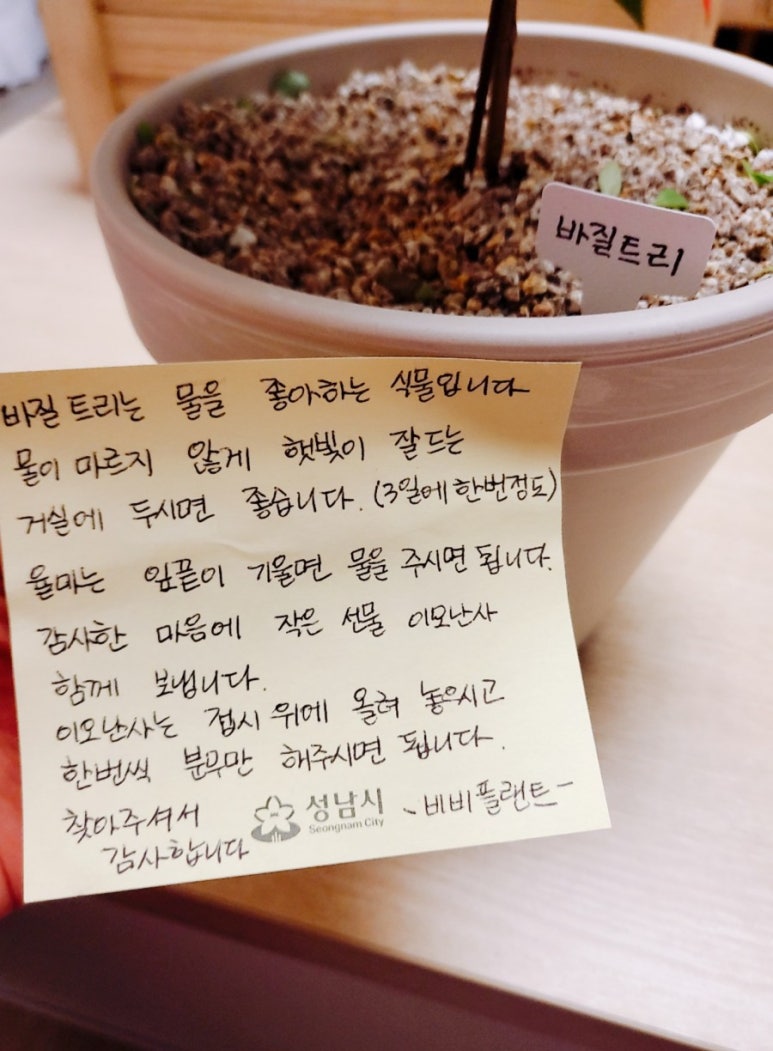 바질트리
바질 트리는 물을 좋아하는 식물입니다
물이 마르지 않게 햇빛이 잘드는
거실에 두시면 좋습니다. (3일에 한번정도)
율마는 잎끝이 기울면 물을 주시면 됩니다.
감사한 마음에 작은 선물 이오난사
함께 보냅니다.
이오난사는 접시 위에 올려 놓으시고
한번씩 분무만 해주시면 됩니다.
찾아주셔서
감사합니다
성남시
Seongnam City
-비비플랜트-